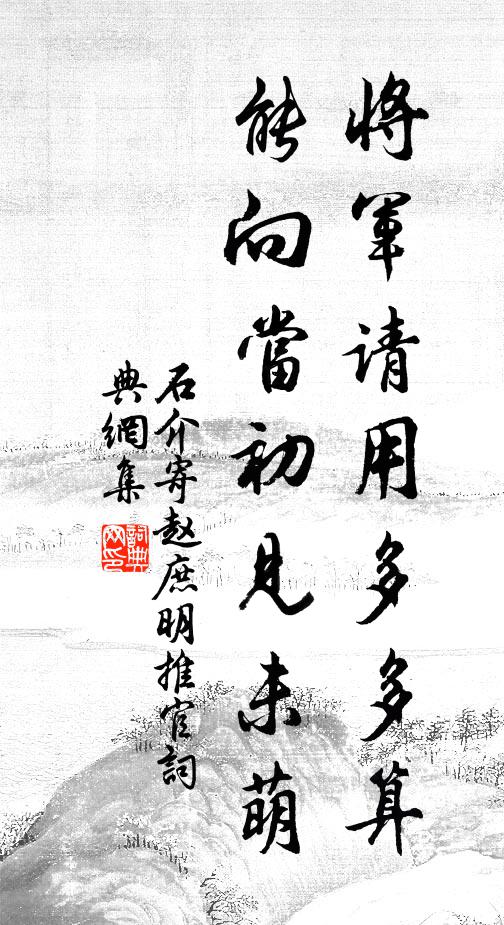 將軍请用多多算
能向當初見未萌
石介寄赵庶明推官詞
典網集
詞典
网印